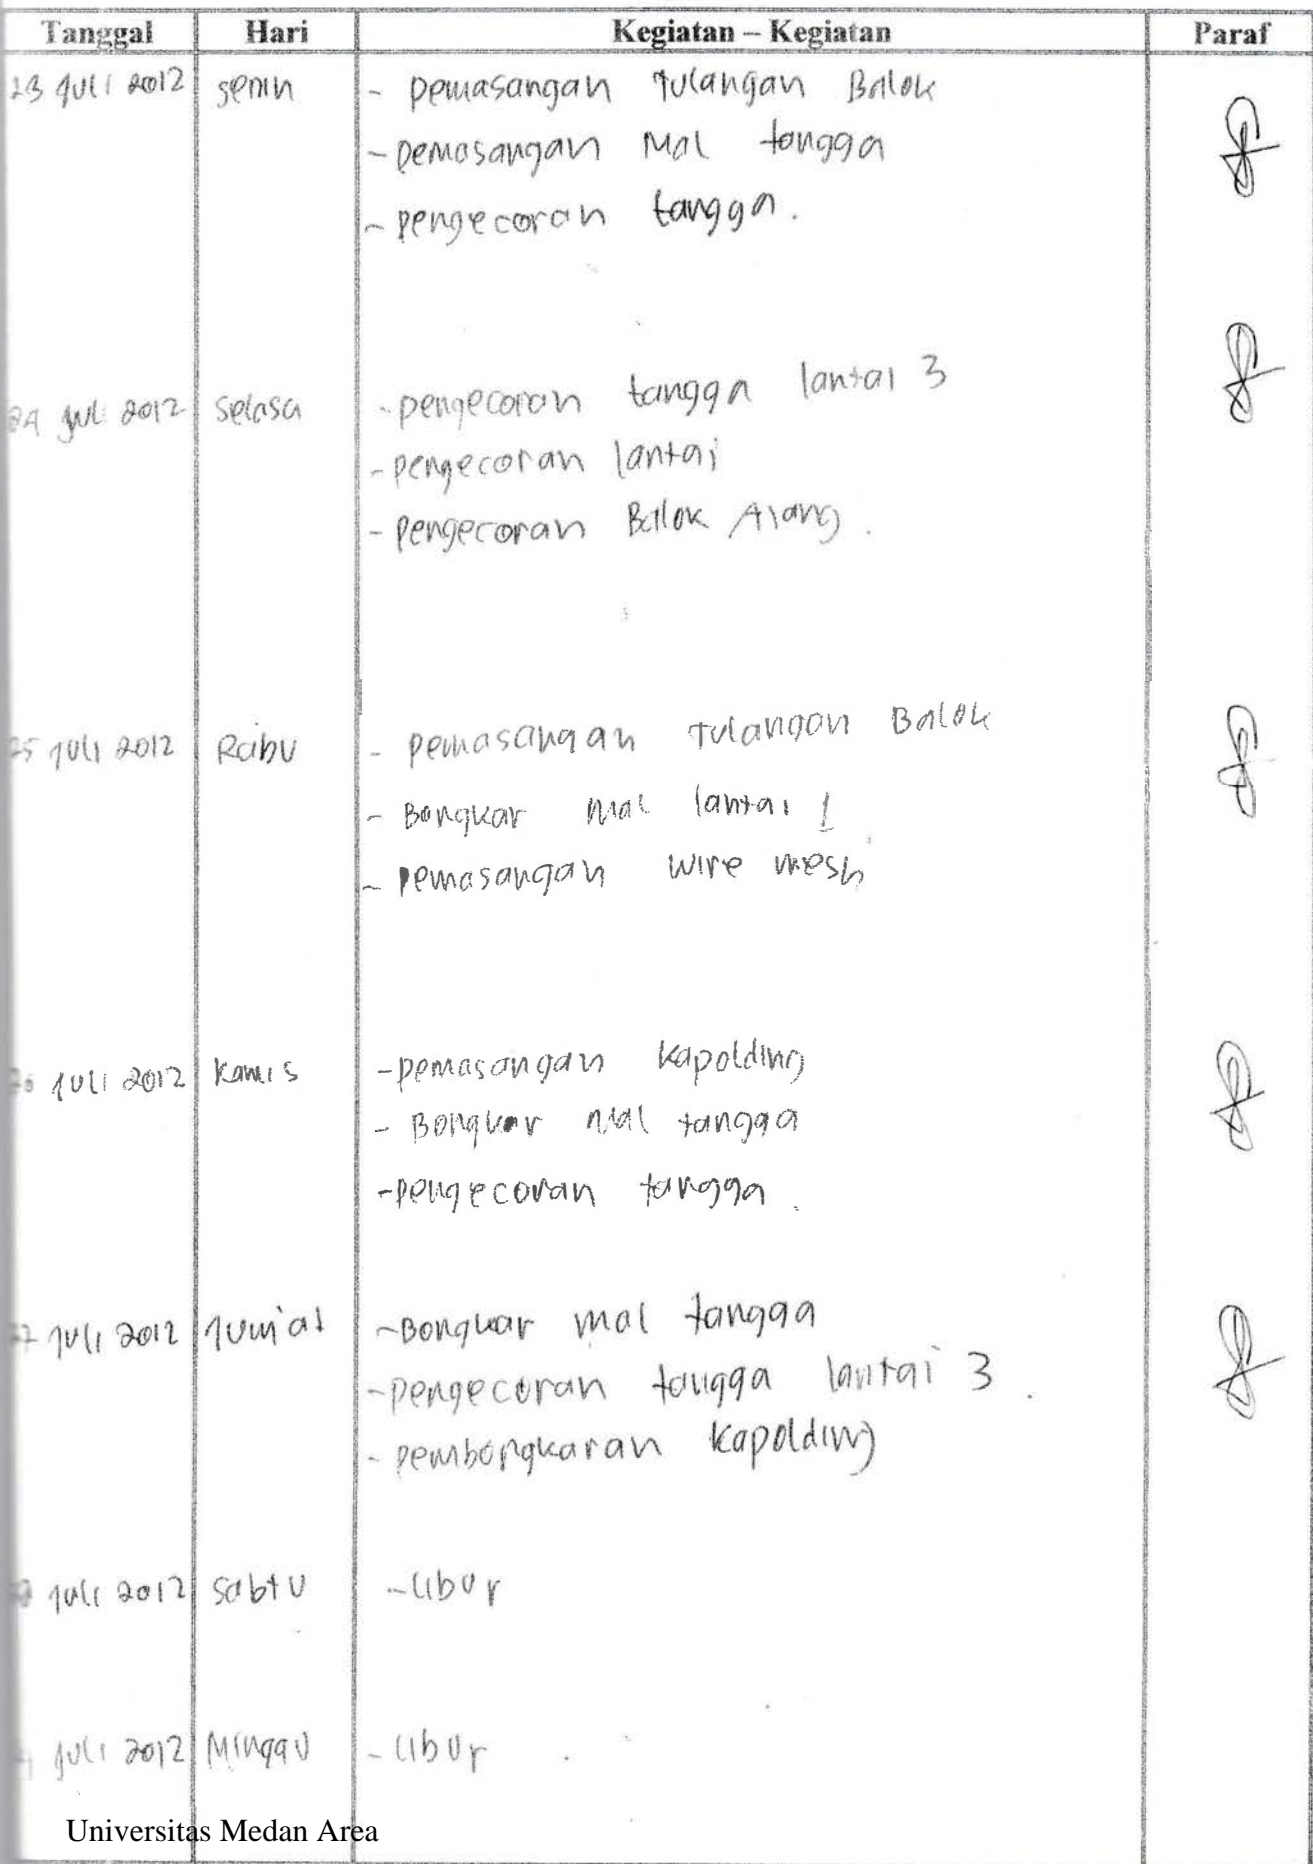 Tanggal Hari Kegiatan – Kegiatan Paraf
23 Juli 2012 senin - pemasangan Tulangan Balok
- pemasangan Mal tangga
- pengecoran tangga.
24 Jul 2012 selasa - pengecoran tangga lantai 3
- pengecoran lantai
- pengecoran Balok Alang.
25 Juli 2012 Rabu - pemasangan Tulangan Balok
- Bongkar mal lantai 1
- pemasangan wire mesh
Juli 2012 Kamis - pemasangan kapolding
- Bongkar mal tangga
- pengecoran tangga.
Juli 2012 Jum'at - Bongkar mal tangga
- pengecoran tangga lantai 3.
- pembongkaran kapolding
Juli 2012 Sabtu - libur
Juli 2012 Minggu - libur
Universitas Medan Area